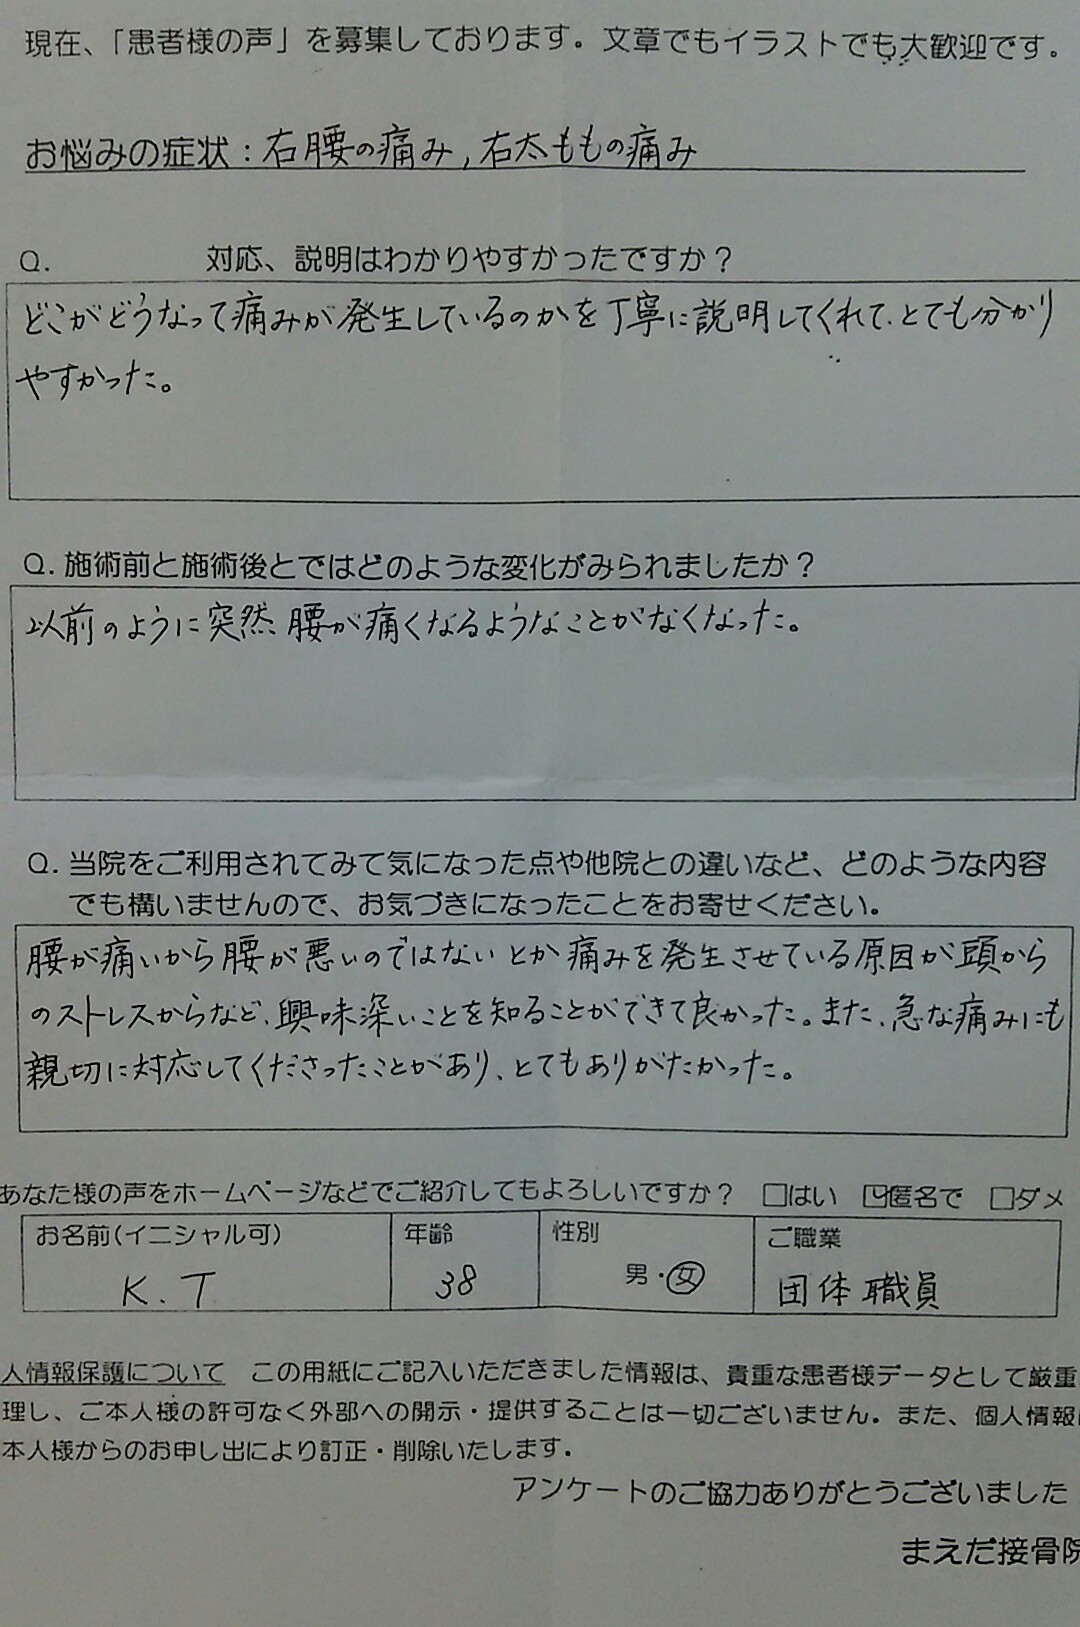 現在、「患者様の声」を募集しております。文章でもイラストでも大歓迎です。
お悩みの症状：右腰の痛み，右太ももの痛み
Q. 対応、説明はわかりやすかったですか？
どこがどうなって痛みが発生しているのかを丁寧に説明してくれて、とても分かり
やすかった。
Q. 施術前と施術後とではどのような変化がみられましたか？
以前のように突然、腰が痛くなるようなことがなくなった。
Q. 当院をご利用されてみて気になった点や他院との違いなど、どのような内容
でも構いませんので、お気づきになったことをお寄せください。
腰が痛いから腰が悪いのではないとか痛みを発生させている原因が頭から
のストレスからなど、興味深いことを知ることができて良かった。また、急な痛みにも
親切に対応してくださったことがあり、とてもありがたかった。
あなた様の声をホームページなどでご紹介してもよろしいですか？ □はい ☑匿名で □ダメ
お名前(イニシャル可) 年齢 性別 ご職業
K.T 38 男・女 団体職員
人情報保護について この用紙にご記入いただきました情報は、貴重な患者様データとして厳重
理し、ご本人様の許可なく外部への開示・提供することは一切ございません。また、個人情報
本人様からのお申し出により訂正・削除いたします。
アンケートのご協力ありがとうございました
まえだ接骨院